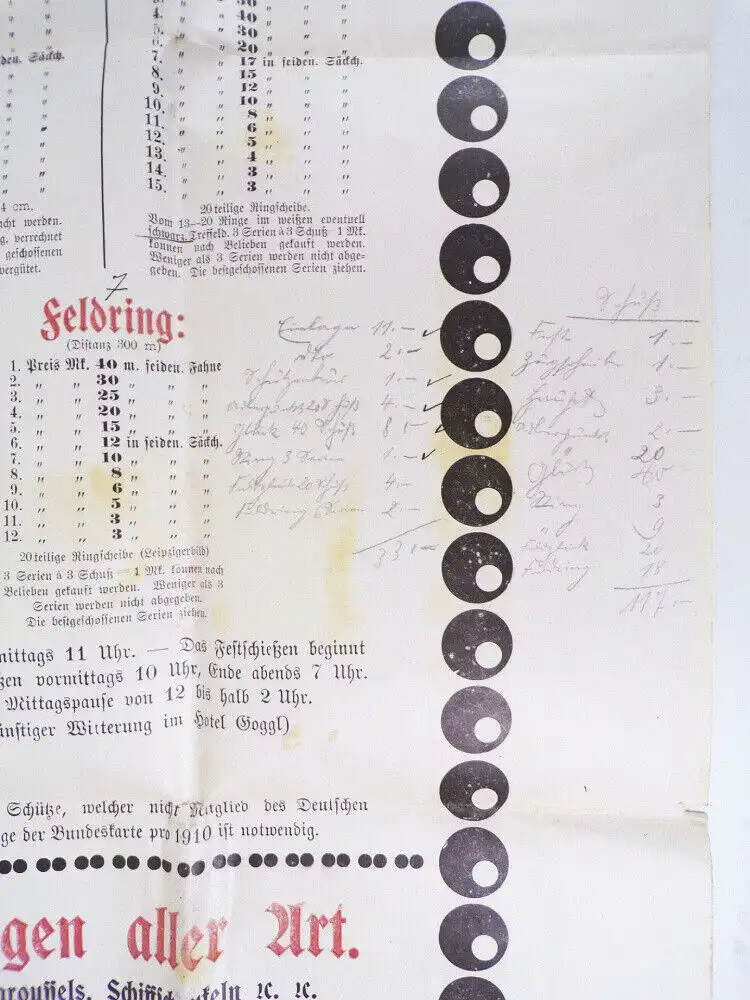 30 „ „ „
4. „ „ 40 „ „ „
5. „ „ 30 „ „ „
6. „ „ 20 „ „ „
7. „ „ 17 in seiden. Säckch.
8. „ „ 15 „ „ „
9. „ „ 12 „ „ „
10. „ „ 10 „ „ „
11. „ „ 8 „ „ „
12. „ „ 6 „ „ „
13. „ „ 5 „ „ „
14. „ „ 4 „ „ „
15. „ „ 3 „ „ „
„ 3 „ „ „
den. Säckch.
4 cm.
acht werden.
g. verrechnet
geschossenen
vergütet.
20teilige Ringscheibe.
Vom 13—20 Ringe im weißen eventuell
schwarz. Treffeld. 3 Serien à 3 Schuß 1 Mk.
können nach Belieben gekauft werden.
Weniger als 3 Serien werden nicht abge=
geben. Die bestgeschossenen Serien ziehen.
7
Feldring:
(Distanz 300 m)
1. Preis Mk. 40 m. seiden. Fahne
2. „ „ 30 „ „ „
3. „ „ 25 „ „ „
4. „ „ 20 „ „ „
5. „ „ 15 „ „ „
6. „ „ 12 in seiden. Säckch.
7. „ „ 10 „ „ „
8. „ „ 8 „ „ „
9. „ „ 6 „ „ „
10. „ „ 5 „ „ „
11. „ „ 3 „ „ „
12. „ „ 3 „ „ „
20teilige Ringscheibe (Leipzigerbild)
3 Serien à 3 Schuß — 1 Mk. können nach
Belieben gekauft werden. Weniger als 3
Serien werden nicht abgegeben.
Die bestgeschossenen Serien ziehen.
Einlage 11.—
dto 2.—
1.—
20 Schuß 4.—
Glück 40 Schuß 8.—
Ring 3 Serien 1.—
20 Schuß 4.—
Feldring 6 Serien 2.—
33.—
Schuß
Fest 1.—
1.—
Haupt 3.—
2.—
20
Glück 40
Ring 3
„ 9
20
Feldring 18
117.—
mittags 11 Uhr. — Das Festschießen beginnt
ßen vormittags 10 Uhr, Ende abends 7 Uhr.
Mittagspause von 12 bis halb 2 Uhr.
ünstiger Witterung im Hotel Goggl)
Schütze, welcher nicht Mitglied des Deutschen
ge der Bundeskarte pro 1910 ist notwendig.
gen aller Art.
arroussels, Schiffschaukeln ꝛc. ꝛc.